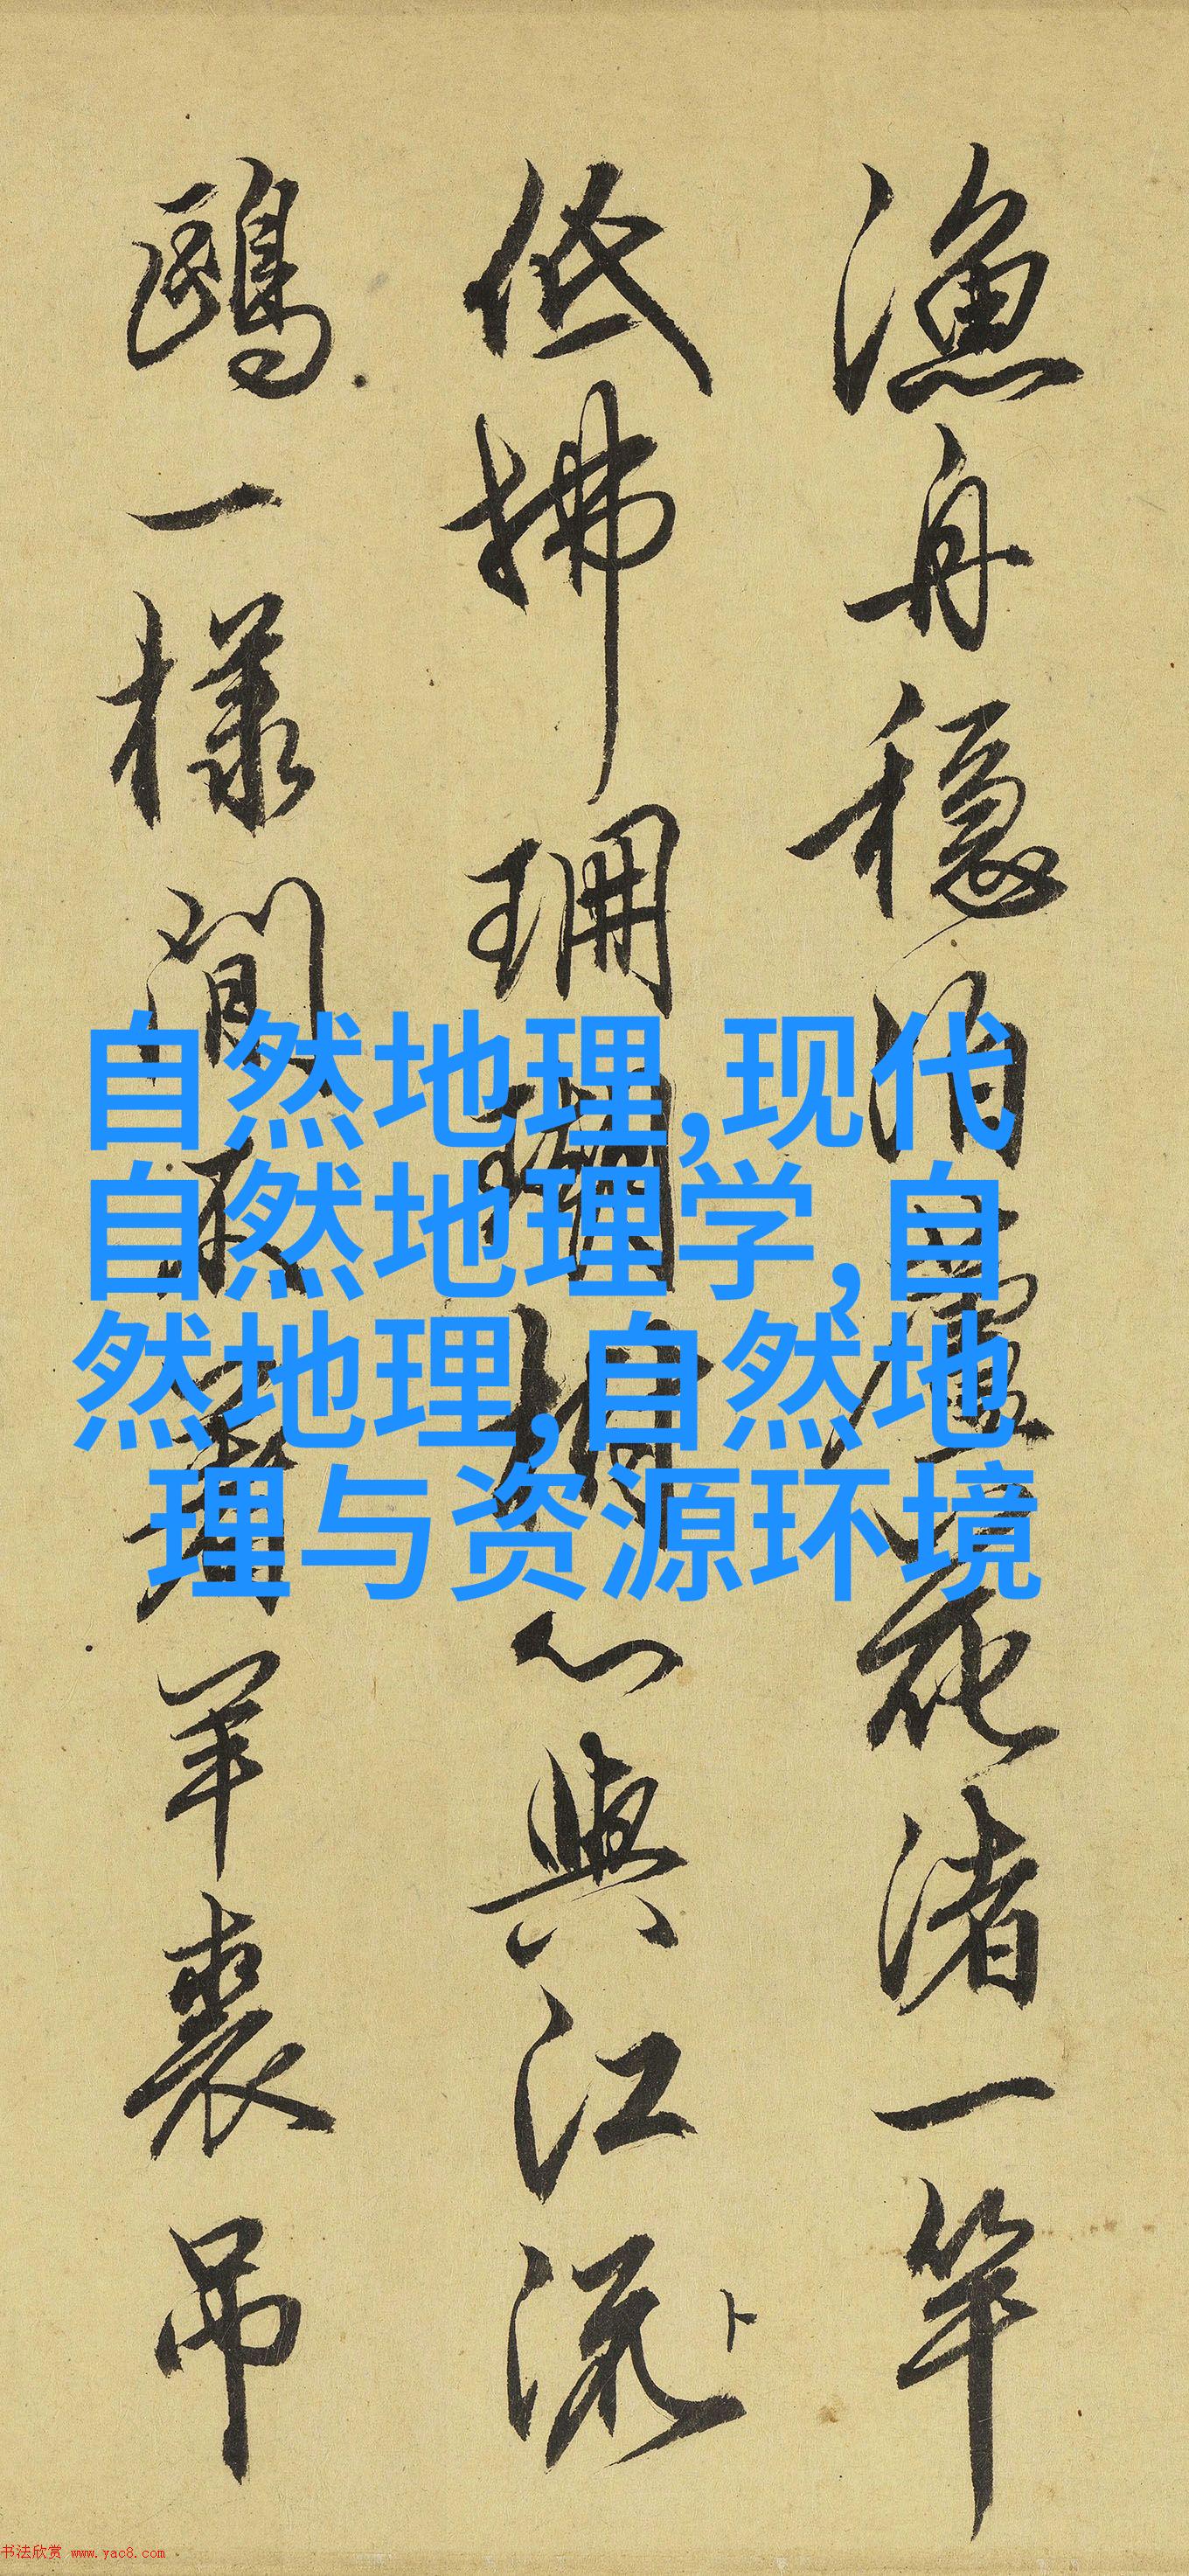 漁舟穩泊花渚一竿
低拂珊瑚心與江流
鷗一樣閒羊裘吊
自然地理,现代
自然地理学,自
然地理,自然地
理与资源环境
书法欣赏 www.yac8.com